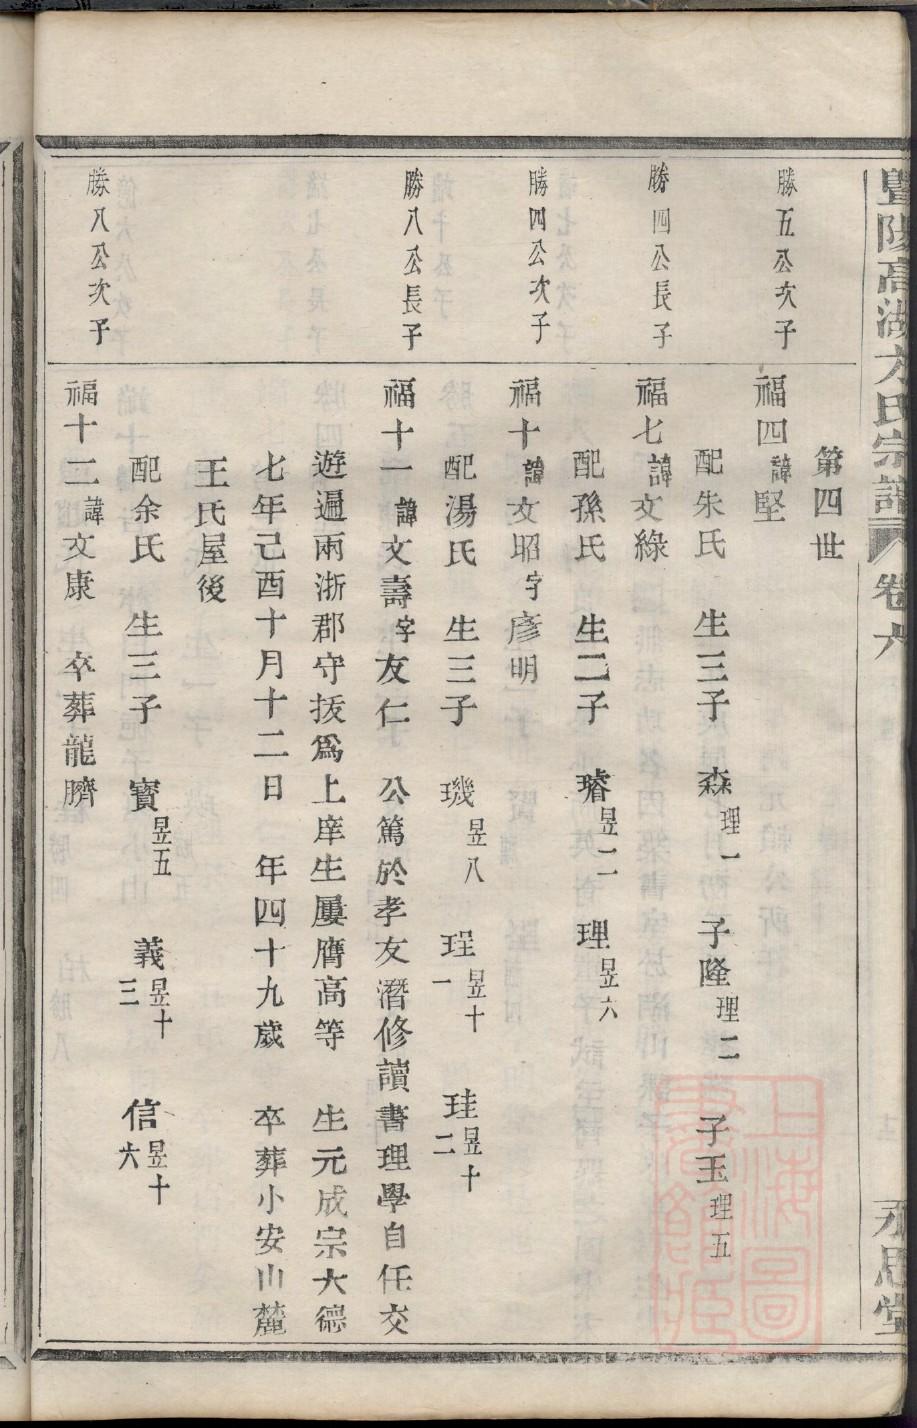 暨陽高湖方氏宗譜 卷六 永思堂
第四世
勝五公次子 福四諱堅
配朱氏 生三子 森理一 子隆理二 子玉理五
勝四公長子 福七諱文綠
配孫氏 生二子 璿昱二 理昱六
勝四公次子 福十諱文昭字彥明
配湯氏 生三子 璣昱八 珵昱十一 珪昱十二
勝八公長子 福十一諱文壽字友仁 公篤於孝友潛修讀書理學自任交
遊遍兩浙郡守拔為上庠生屢膺高等 生元成宗大德
七年己酉十月十二日 年四十九歲 卒葬小安山麓
王氏屋後
配余氏 生三子 寶昱五 義昱十三 信昱十六
勝八公次子 福十二諱文康 卒葬龍臍